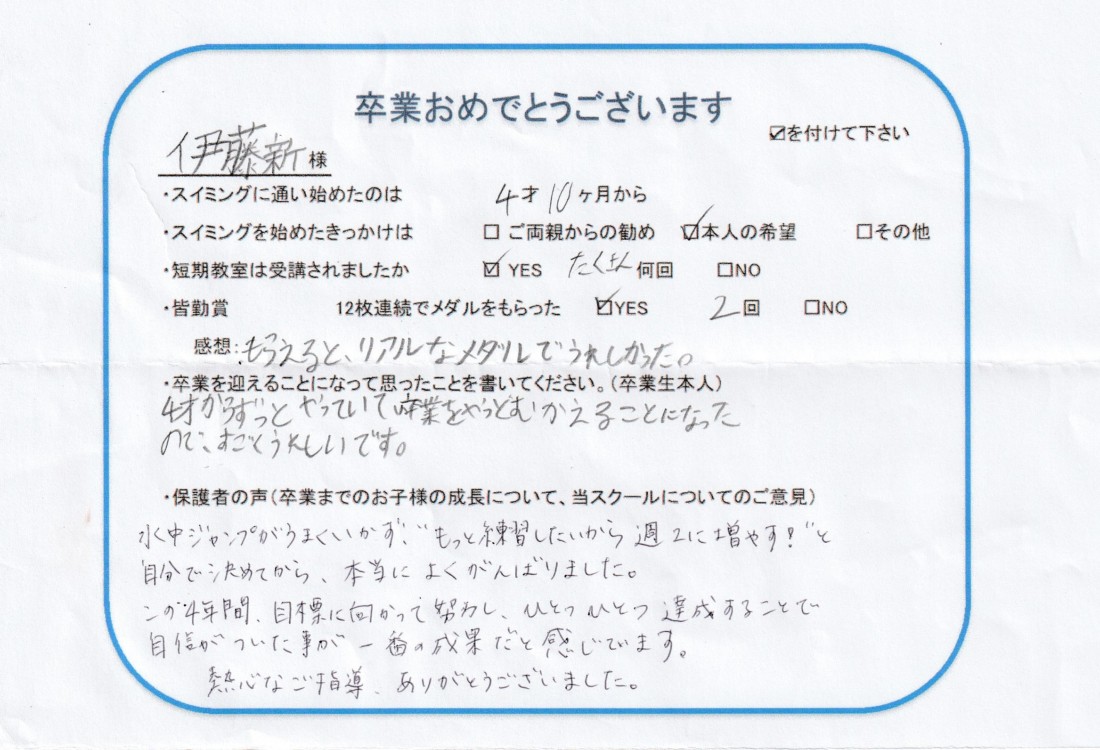 卒業おめでとうございます
☑を付けて下さい
伊藤新 様
・スイミングに通い始めたのは 4才10ヶ月から
・スイミングを始めたきっかけは ☐ ご両親からの勧め ☑本人の希望 ☐その他
・短期教室は受講されましたか ☑ YES たくさん 何回 ☐NO
・皆勤賞 12枚連続でメダルをもらった ☑YES 2回 ☐NO
感想:もらえると、リアルなメダルでうれしかった。
・卒業を迎えることになって思ったことを書いてください。(卒業生本人)
4才からずっとやっていて卒業をやっとむかえることになった
ので、すごくうれしいです。
・保護者の声(卒業までのお子様の成長について、当スクールについてのご意見)
水中ジャンプがうまくいかず、"もっと練習したいから週2に増やす!"と
自分で決めてから、本当によくがんばりました。
この4年間、目標に向かって努力し、ひとつひとつ達成することで
自信がついた事が一番の成果だと感じています。
熱心なご指導、ありがとうございました。